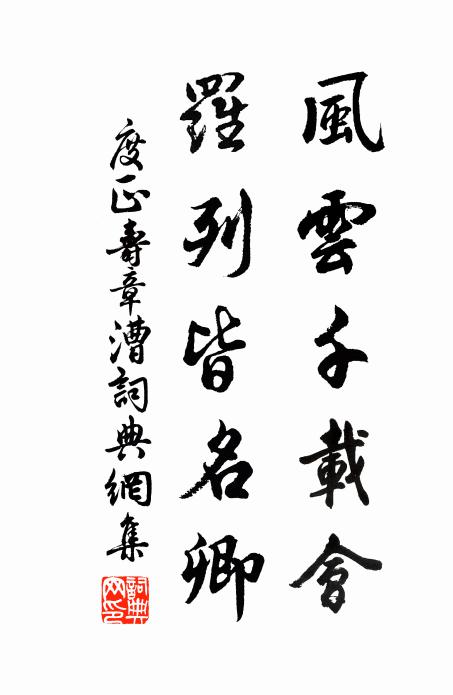 風雲千載會
羅列皆名卿
度正壽章漕詞典網集
詞典網印